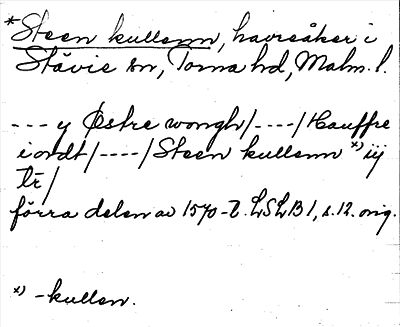 *Steen kullenn, havreåker i
Stävie sn, Torna hd, Malm. l.
--- y Østre wongh/----/Hauffre
i ordt/----/Steen kullenn x) iij
tr/
förra delen av 1570-t. LSLB 1, s. 12. orig.
x) -kullen.